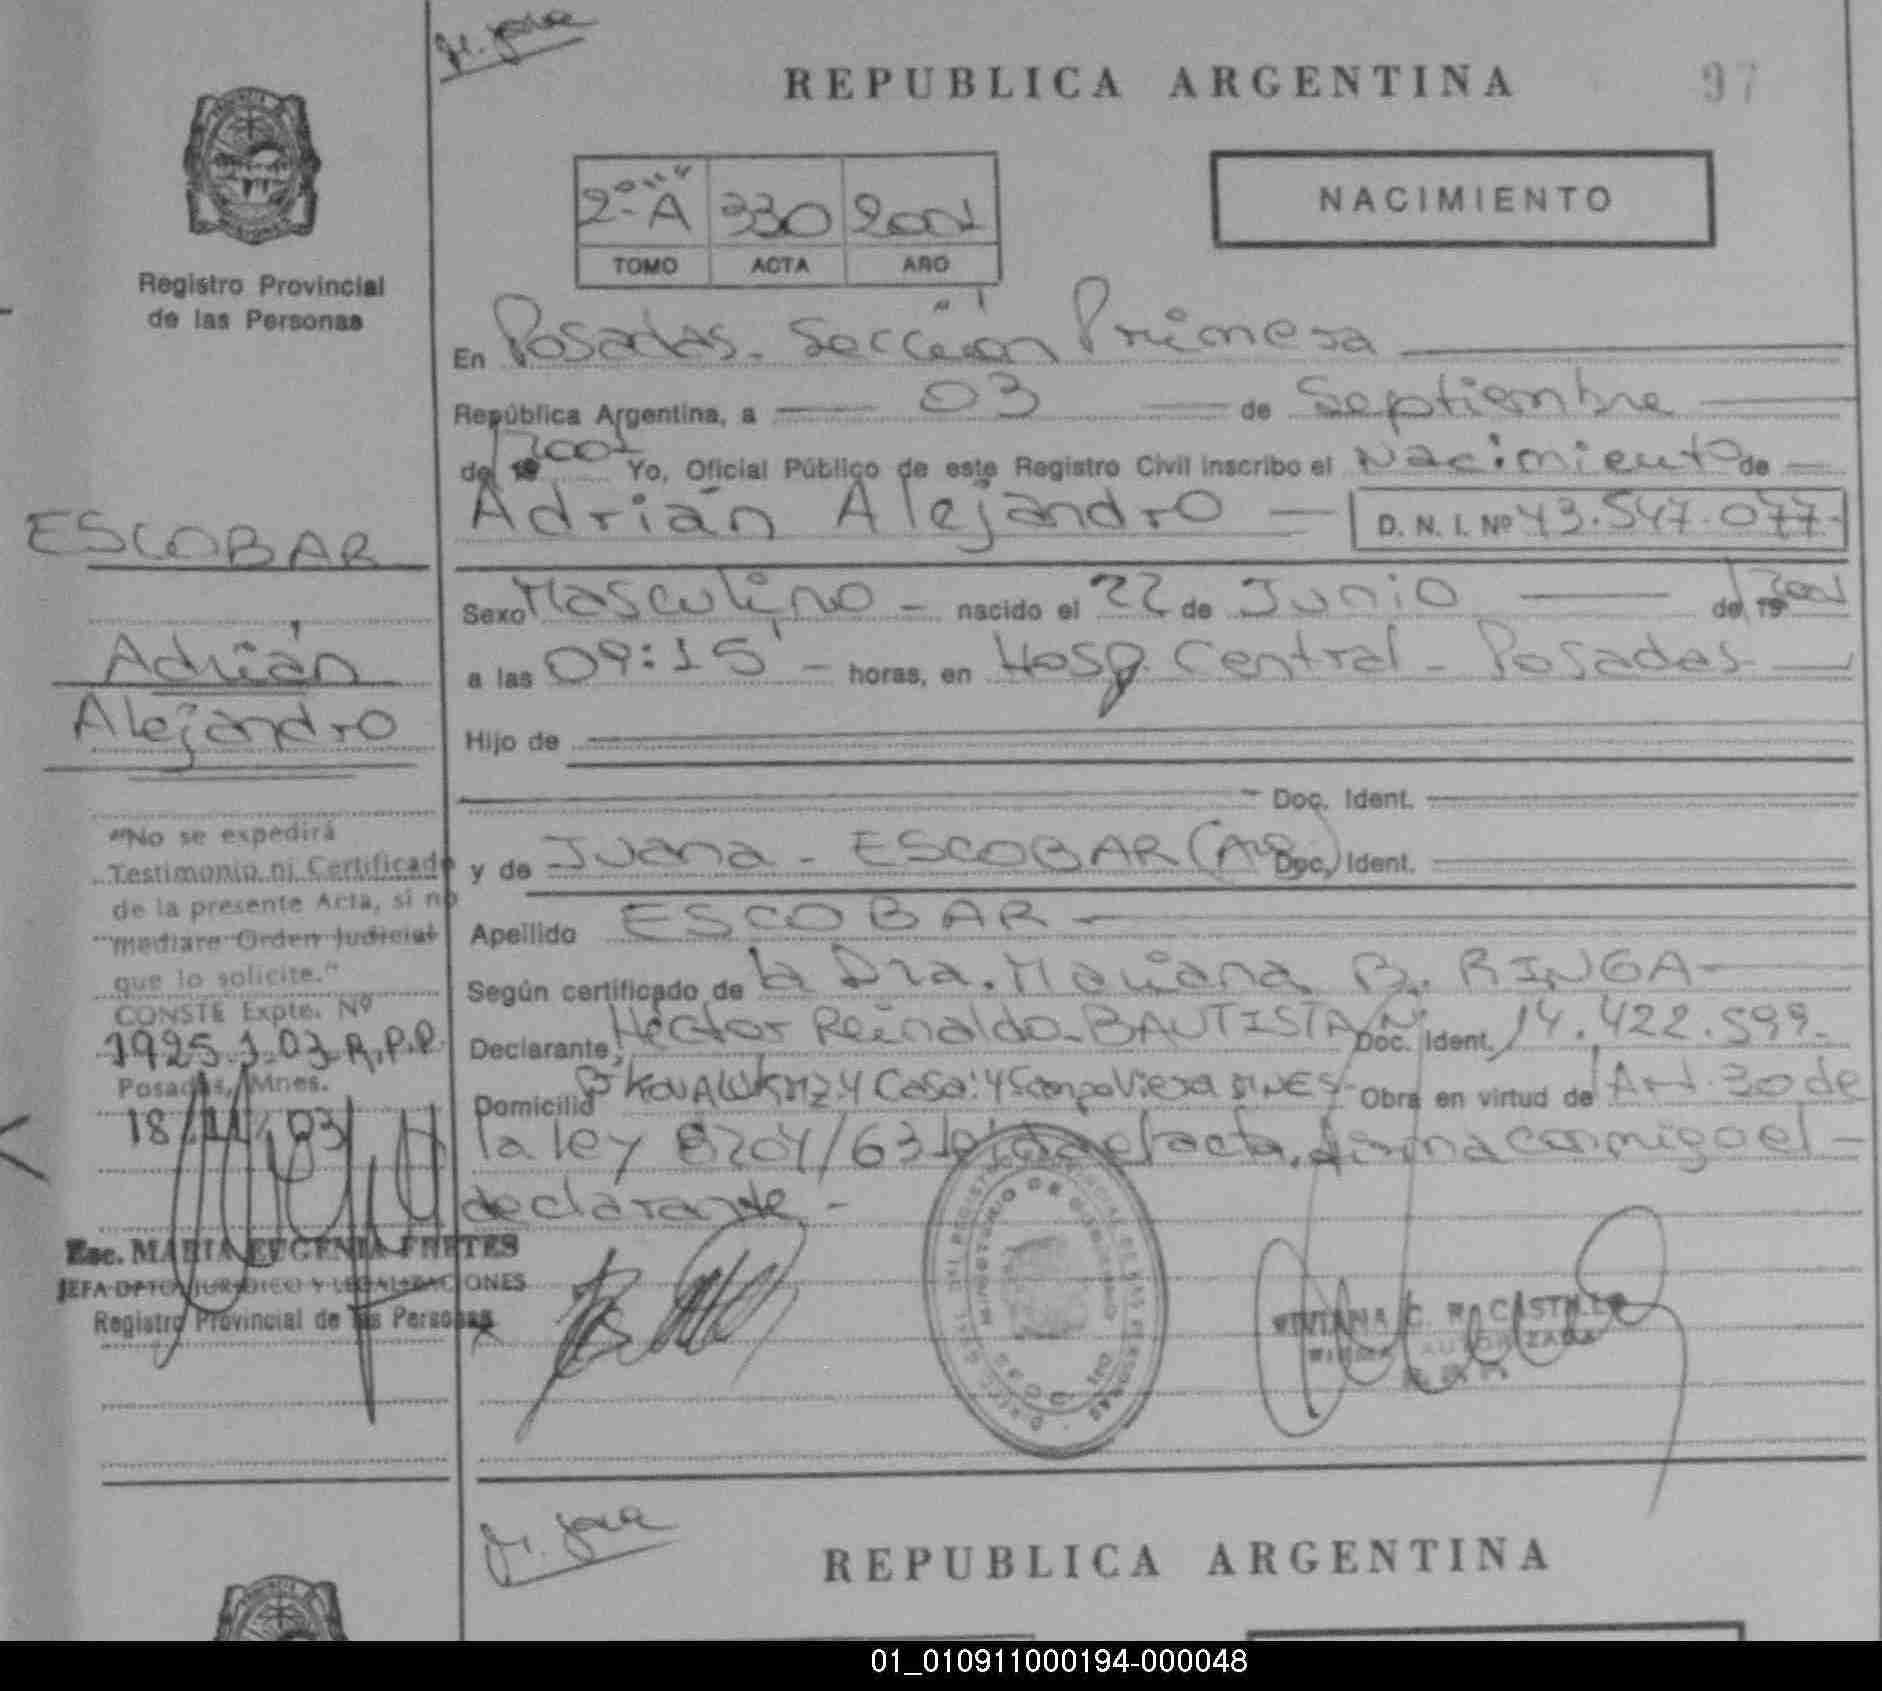 REPUBLICA ARGENTINA
97
2º A 330 2001
TOMO ACTA AÑO
NACIMIENTO
Registro Provincial
de las Personas
En Posadas - Sección Primera
República Argentina, a 03 de Septiembre
de 19 2001 Yo, Oficial Público de este Registro Civil inscribo el Nacimiento de
Adrián Alejandro D. N. I. Nº 43.547.077-
ESCOBAR
Adrián
Alejandro
Sexo Masculino - nacido el 22 de Junio de 19 2001
a las 09:15' - horas, en Hosp. Central - Posadas-
Hijo de
Doc. Ident.
y de Juana - ESCOBAR Doc. Ident.
Apellido ESCOBAR
Según certificado de la Dra. Mariana B. RINGA
Declarante, Héctor Reinaldo - BAUTISTA Doc. Ident. Nº 14.422.599-
Domicilio Casa: 4 Obra en virtud de Art. 30 de
la ley 8204/63 el acta, firma conmigo el -
declarante -
"No se expedirá
Testimonio ni Certificado
de la presente Acta, si no
mediare Orden Judicial
que lo solicite."
CONSTE Expte. Nº
1925.J.03-R.P.P.
Posadas, Mnes.
18/11/03
Esc. MARIA EUGENIA FRETES
JEFA DPTO. JURIDICO Y LEGALIZACIONES
Registro Provincial de las Personas
MINISTERIO DE GOBIERNO
VIVIANA C. R. CASTILLO
FIRMA AUTORIZADA
REPUBLICA ARGENTINA
01_010911000194-000048